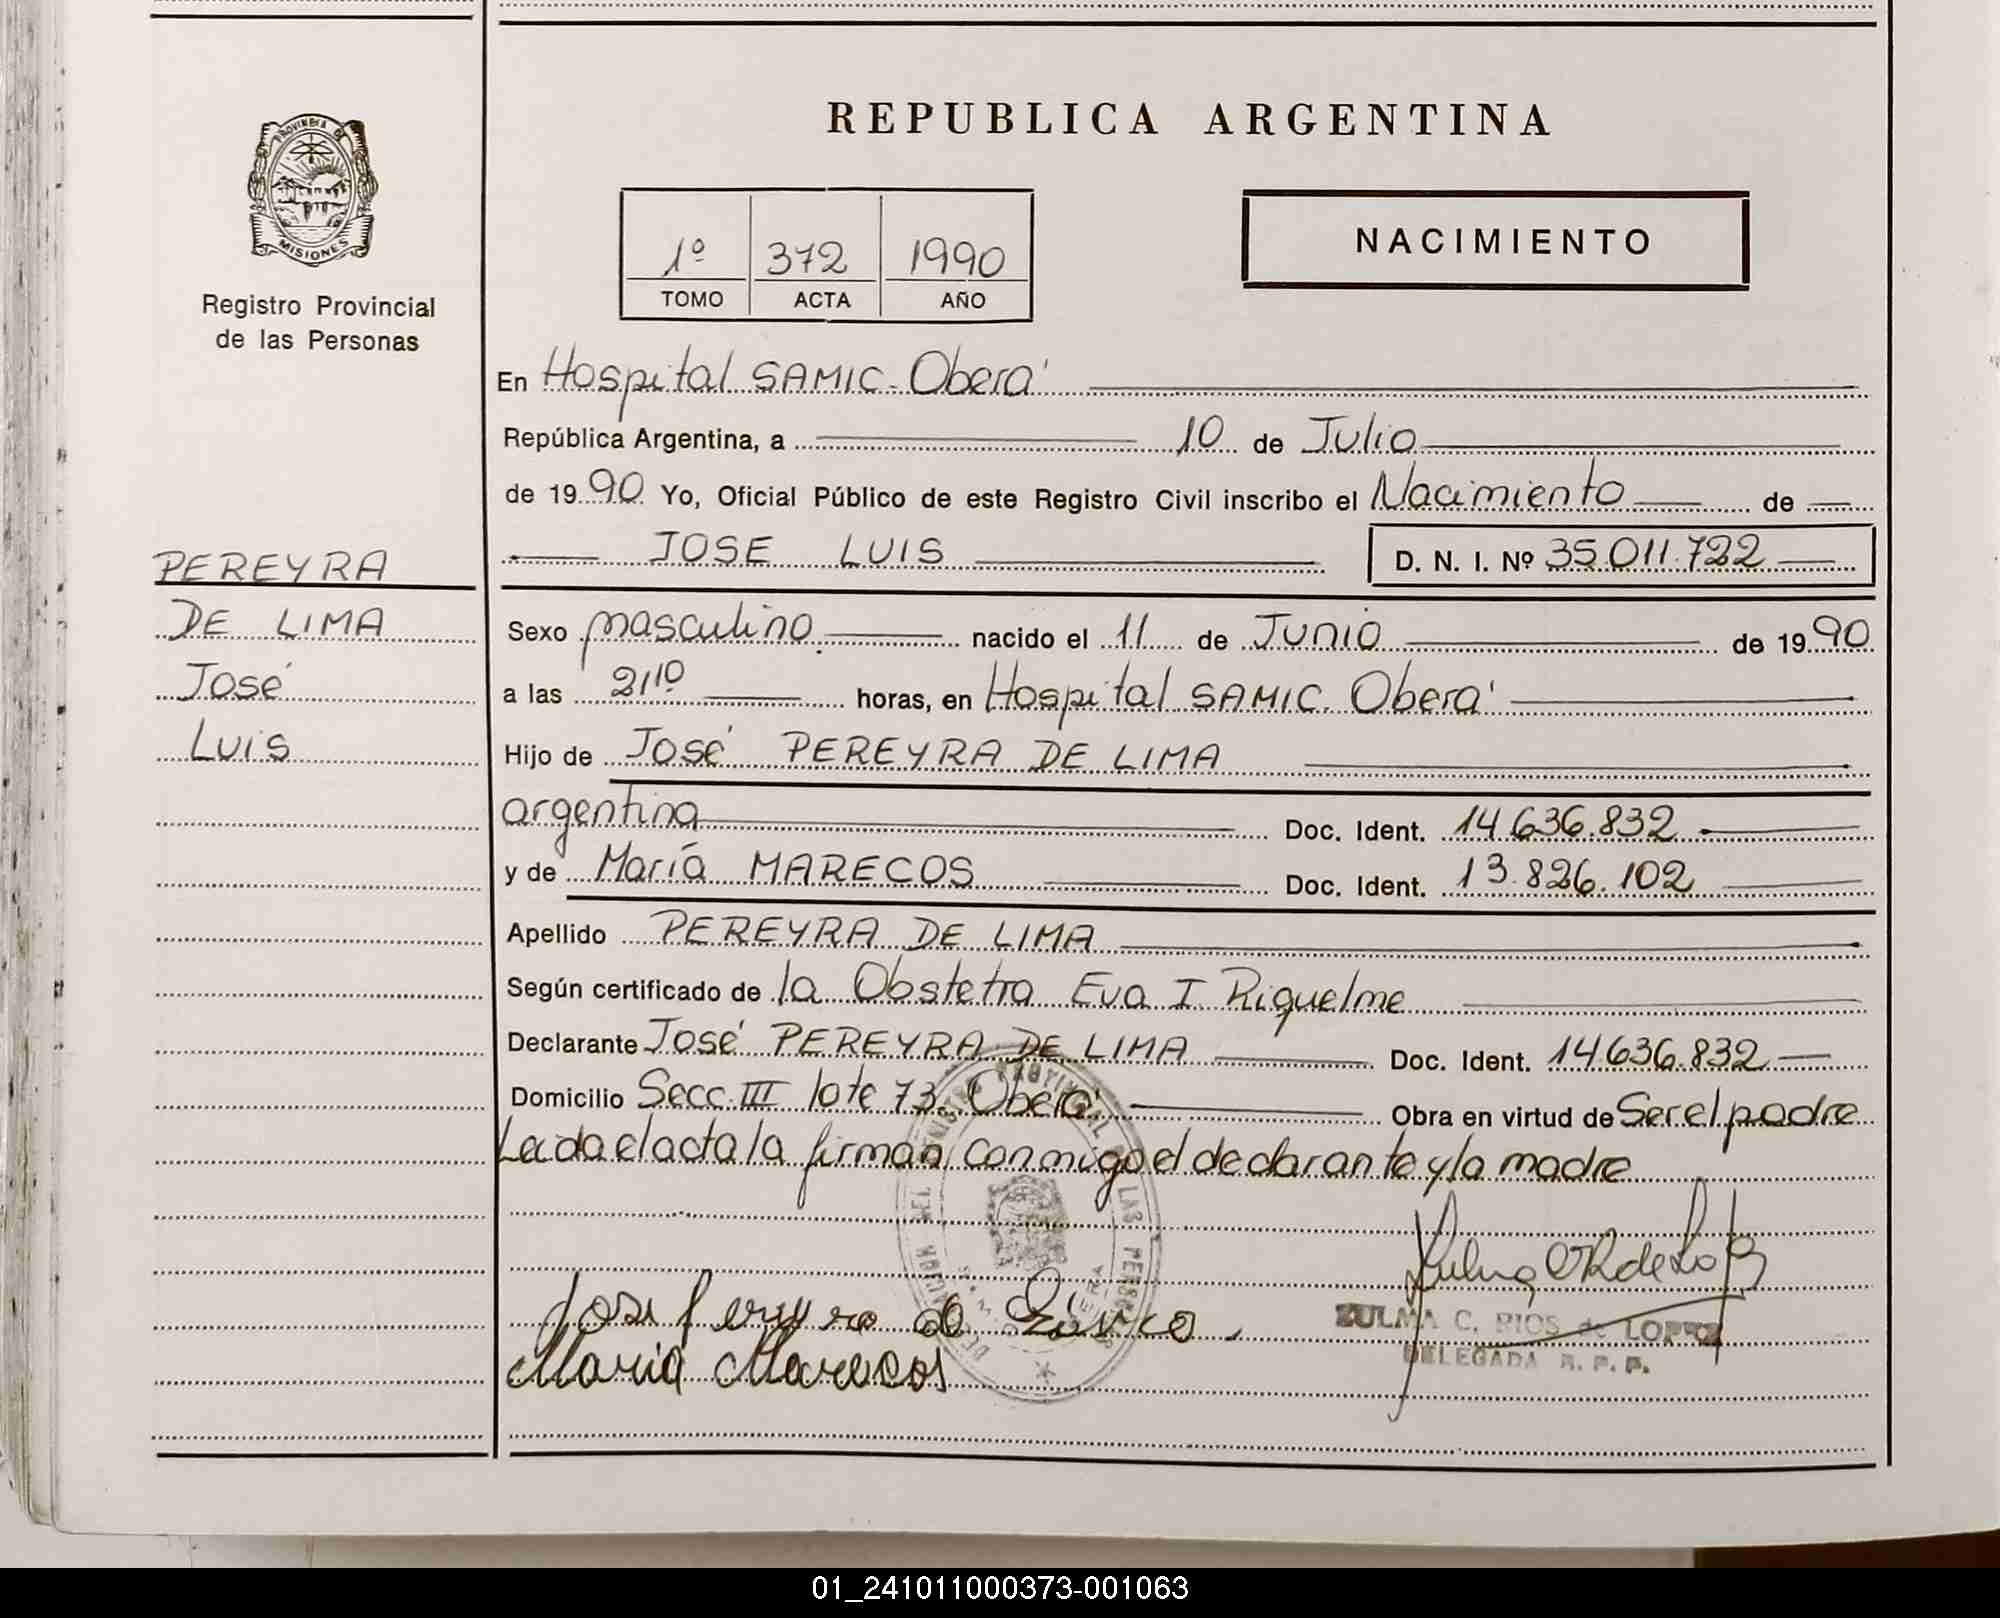 REPUBLICA ARGENTINA
PROVINCIA DE
MISIONES
Registro Provincial
de las Personas
1º 372 1990
TOMO ACTA AÑO
NACIMIENTO
En Hospital SAMIC. Oberá
República Argentina, a 10 de Julio
de 1990 Yo, Oficial Público de este Registro Civil inscribo el Nacimiento de
JOSE LUIS D. N. I. Nº 35.011.722
PEREYRA
DE LIMA
José
Luis
Sexo masculino nacido el 11 de Junio de 1990
a las 21 10 horas, en Hospital SAMIC. Oberá
Hijo de José PEREYRA DE LIMA
argentina Doc. Ident. 14.636.832
y de María MARECOS Doc. Ident. 13.826.102
Apellido PEREYRA DE LIMA
Según certificado de la Obstetra Eva I Riquelme
Declarante José PEREYRA DE LIMA Doc. Ident. 14.636.832
Domicilio Secc. III lote 73. Oberá Obra en virtud de Ser el padre
Leida el acta la firman conmigo el declarante y la madre
ZULMA C. RIOS de LOPEZ
DELEGADA R. P. P.
Maria Marecos
01_241011000373-001063